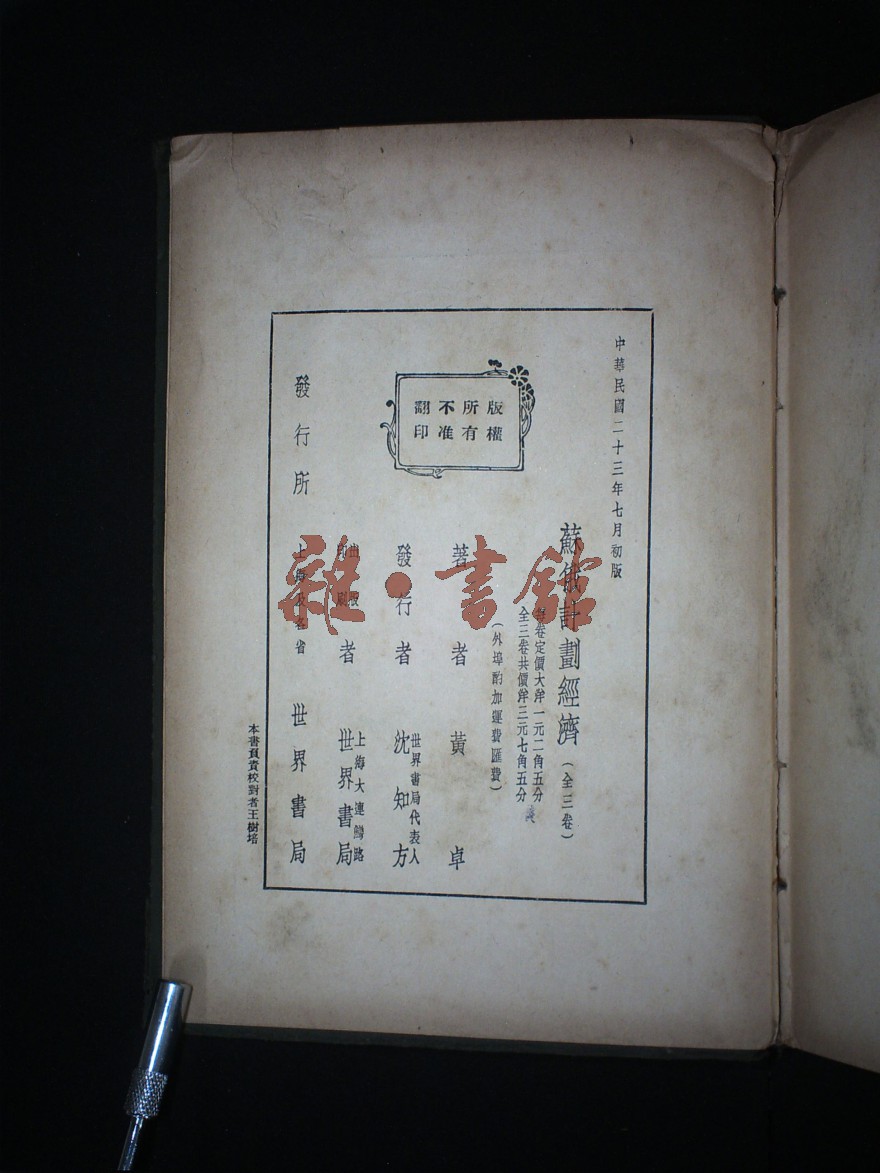 中華民國二十三年七月初版
蘇俄計劃經濟(全三卷)
每卷定價大洋一元二角五分
全三卷共價洋三元七角五分
(外埠酌加運費匯費)
版權
所有
不准
翻印
著者 黃卓
發行者 世界書局代表人 沈知方
出版印刷者 上海大連灣路 世界書局
發行所 上海及各省 世界書局
本書負責校對者王樹培
雜·書館